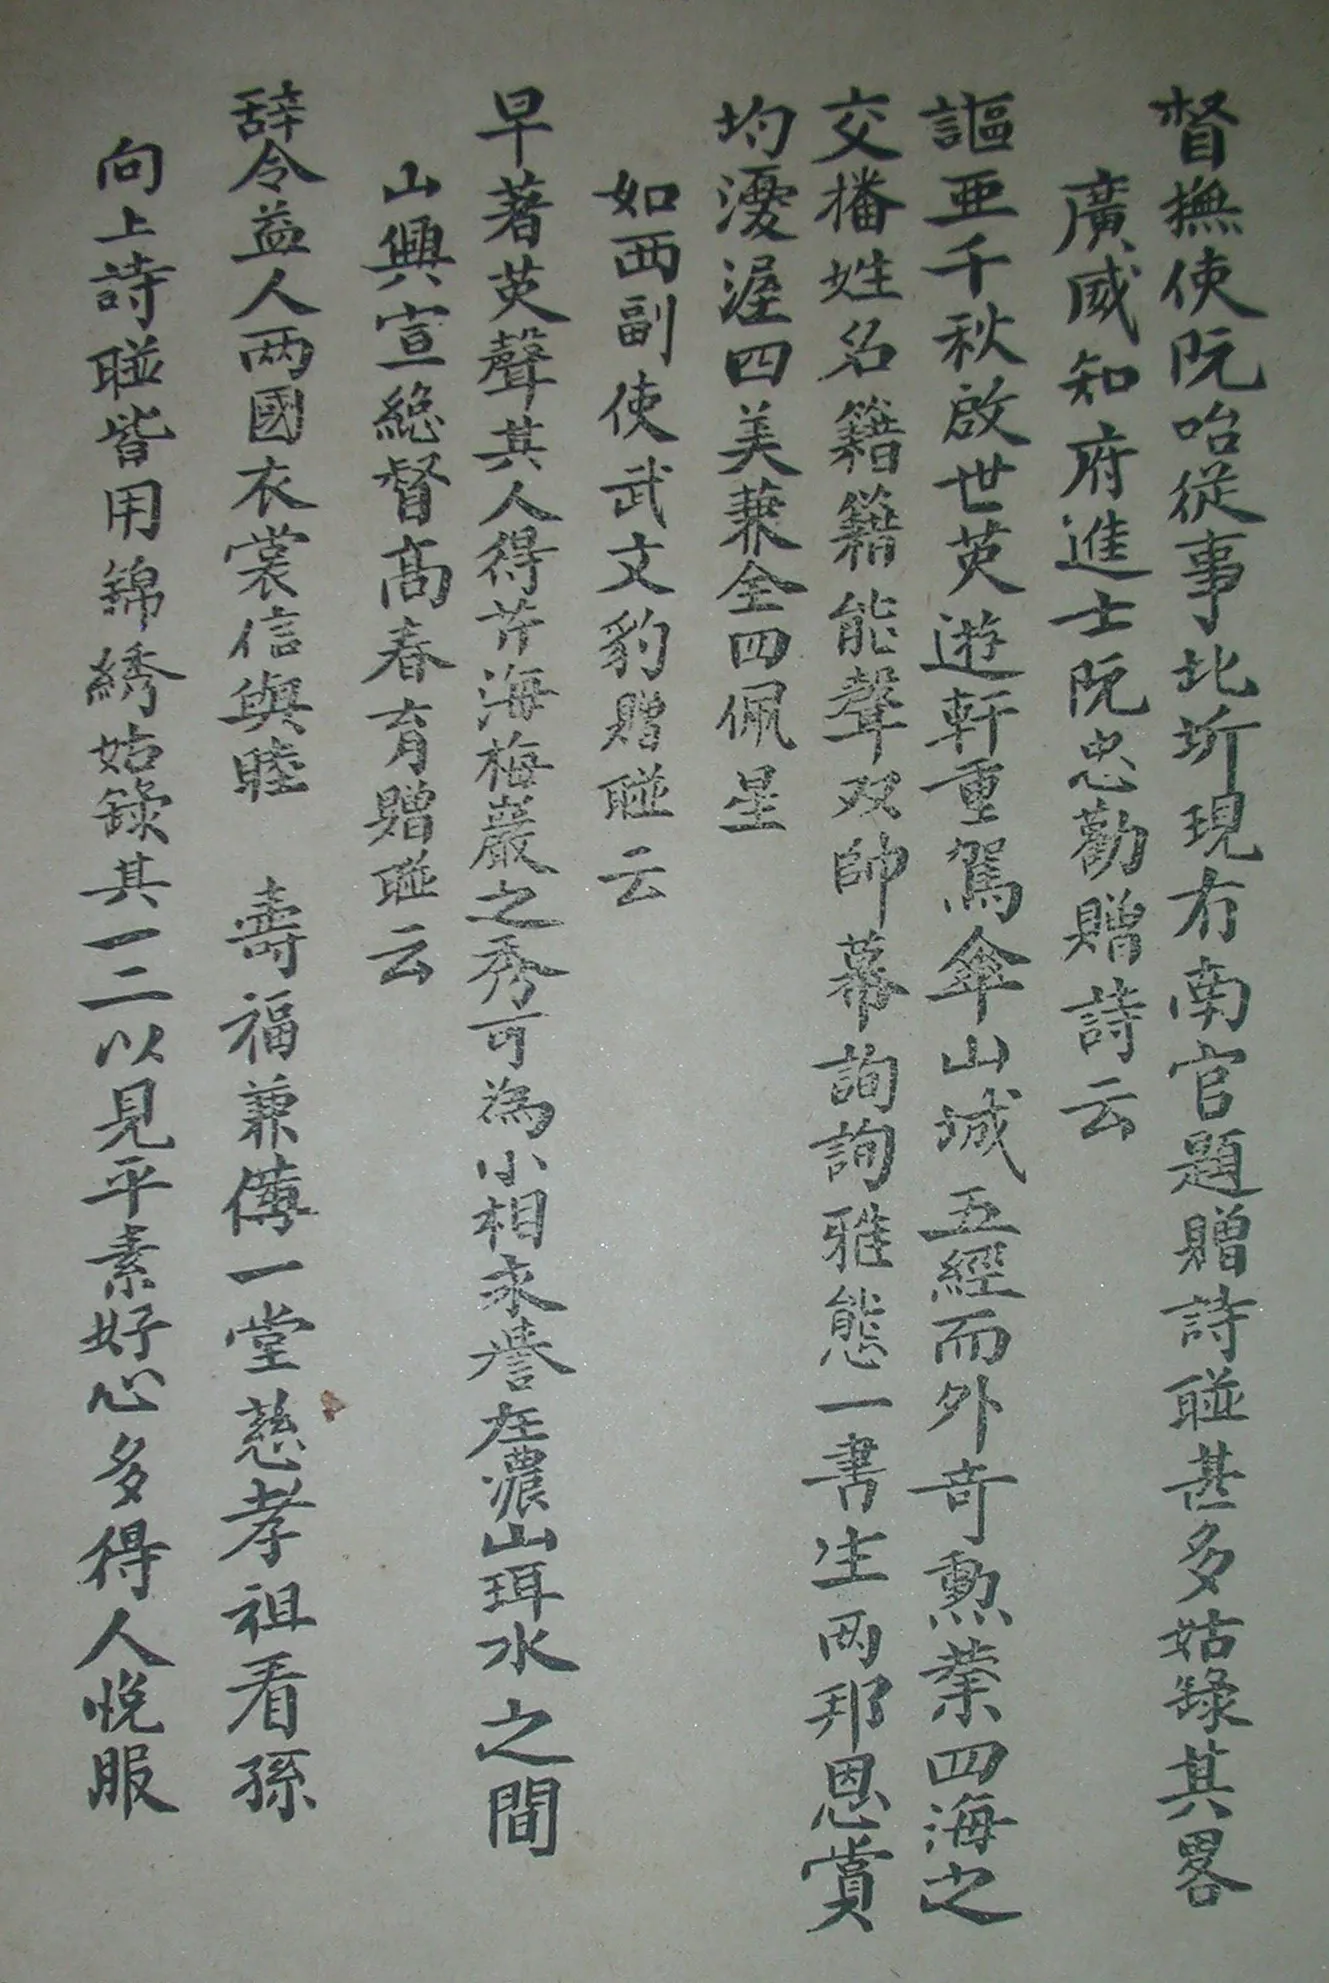 督撫使阮咍從事北圻現冇南官題贈詩聯甚多姑錄其畧
廣威知府進士阮忠勸贈詩云
謳亜千秋啟世英遊軒重駕傘山城五經而外奇勲業四海之
交播姓名籍籍能聲双帥幕詢詢雅態一書生两邦恩賞
均渥四美兼全四佩星
如西副使武文豹贈聯云
早著英聲其人得芹海梅巖之秀可為小相永譽在濃山珥水之間
山興宣総督髙春育贈聯云
辞令益人两國衣裳信與睦 壽福兼一堂慈孝祖看孫
向上詩聯皆用錦綉姑錄其一二以見平素好心多得人悦服